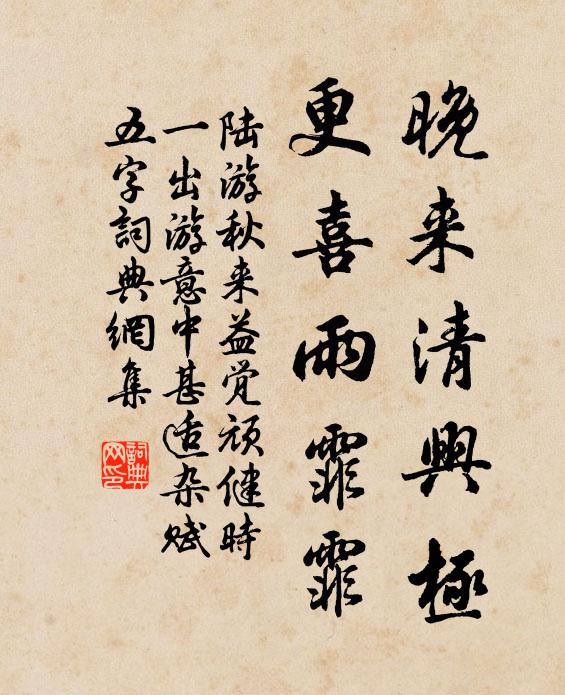 晚来清興極
更喜雨霏霏
陆游秋来益觉顽健时
一出游意中甚适杂赋
五字詞典網集
詞典
网印